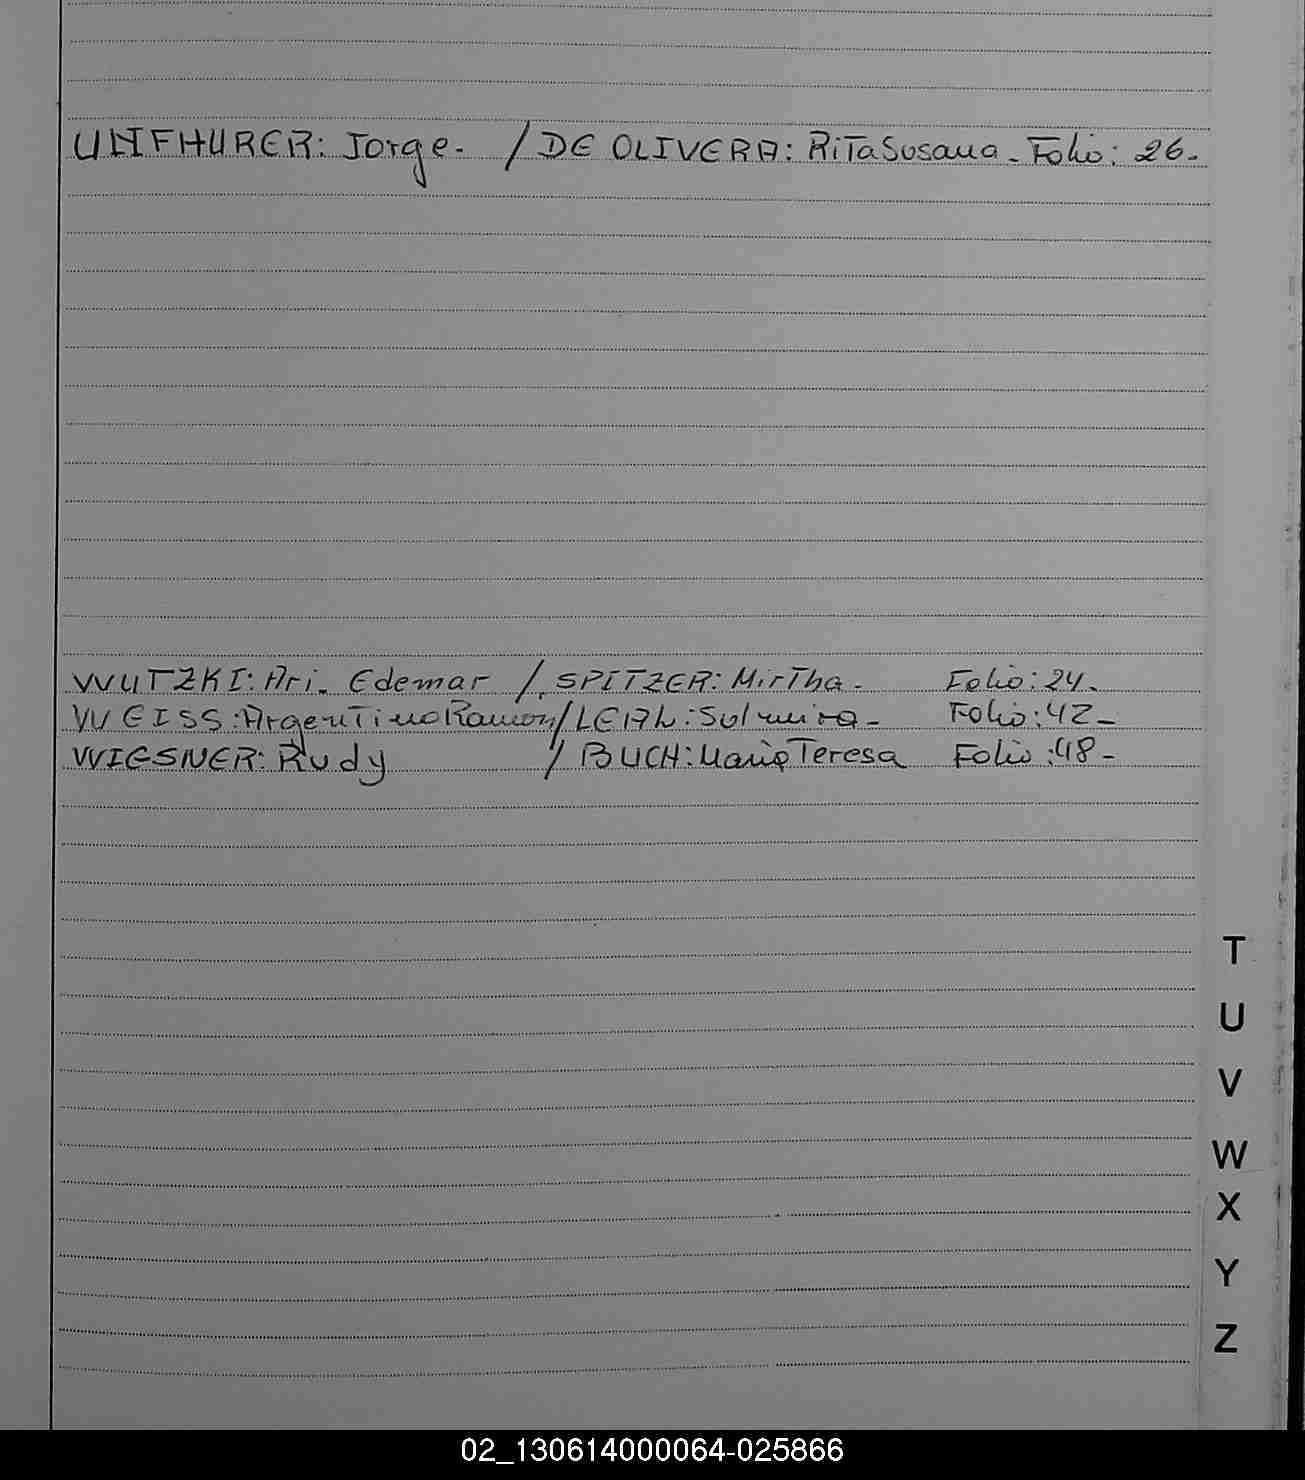 UNFHURER: Jorge. / DE OLIVERA: Rita Susana. Folio: 26.
WUTZKI: Ari. Edemar / SPITZER: Mirtha. Folio: 24.
WEISS: Argentino Ramon / LEAL: Sulmira - Folio: 42-
WIESNER: Rudy / BUCH: Maria Teresa Folio: 48-
T
U
V
W
X
Y
Z
02_130614000064-025866